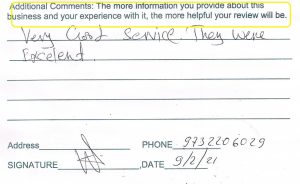 Additional Comments: The more information you provide about this
business and your experience with it, the more helpful your review will be.
Very Good Service. They were
Excelend.
Address
PHONE 9732206029
SIGNATURE ,DATE 9/2/21